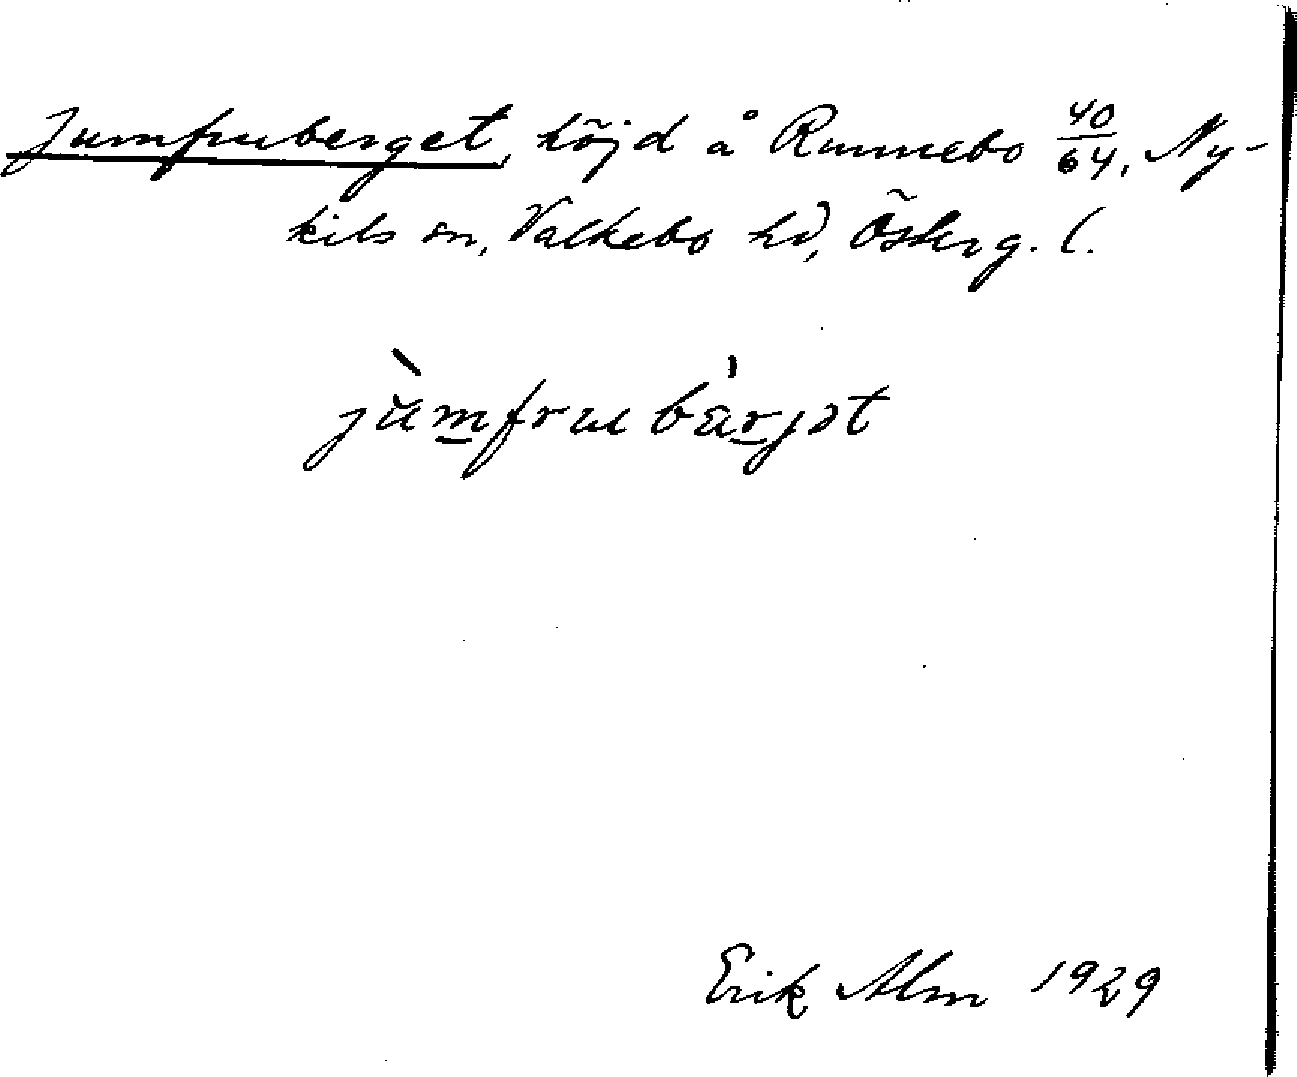 Jumfruberget, höjd å Runnebo 40/64, Ny-
kils sn, Valkebo hd, Österg. l.
jùm̲frɯbär̲jət
Erik Alm 1929